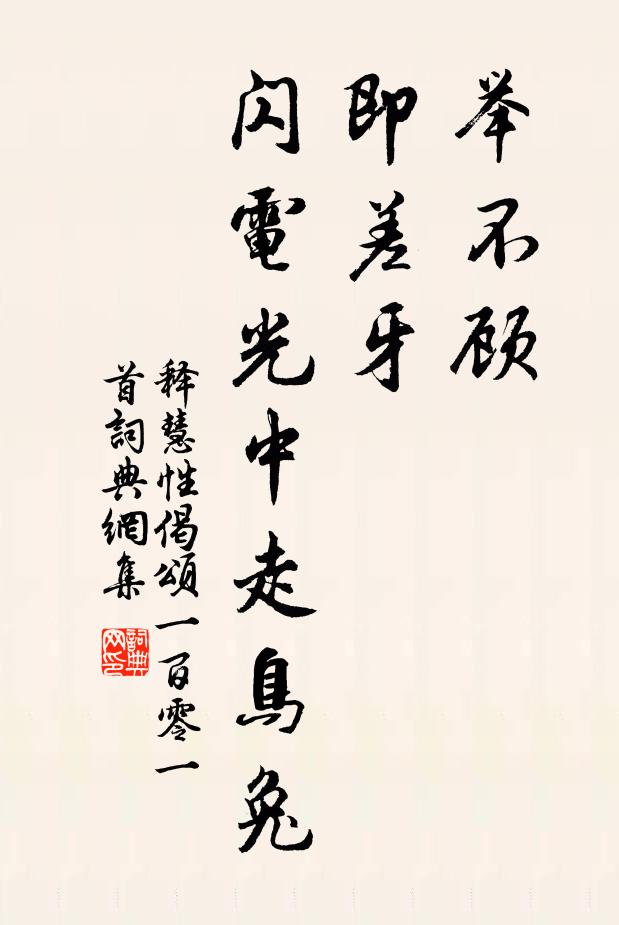 举不顾
即差牙
闪電光中走鳥兔
释慧性偈頌一百零一
首詞典網集
詞典网印